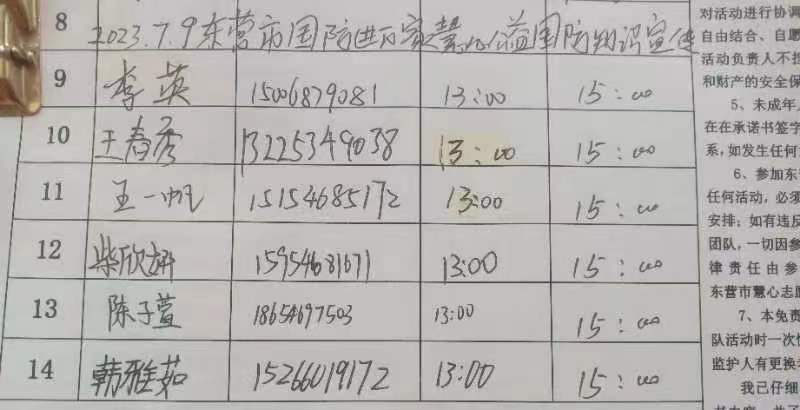 8 2023.7.9东营市国防进万家慧心公益国防知识宣传
9 李英 15006879081 13:00 15:00
10 王春秀 13225349038 13:00 15:00
11 王一帆 15154685172 13:00 15:00
12 柴欣妍 15954681671 13:00 15:00
13 陈子萱 18654697503 13:00 15:00
14 韩雅茹 15266019172 13:00 15:00
对活动进行协调
自由结合、自愿
活动负责人不担
和财产的安全保
5、未成年
在在承诺书签字
系,如发生任何
6、参加东
任何活动,必须
安排;如有违反
团队,一切因参
律责任由参
东营市慧心志愿
7、本免责
队活动时一次性
监护人有更换
我已仔细